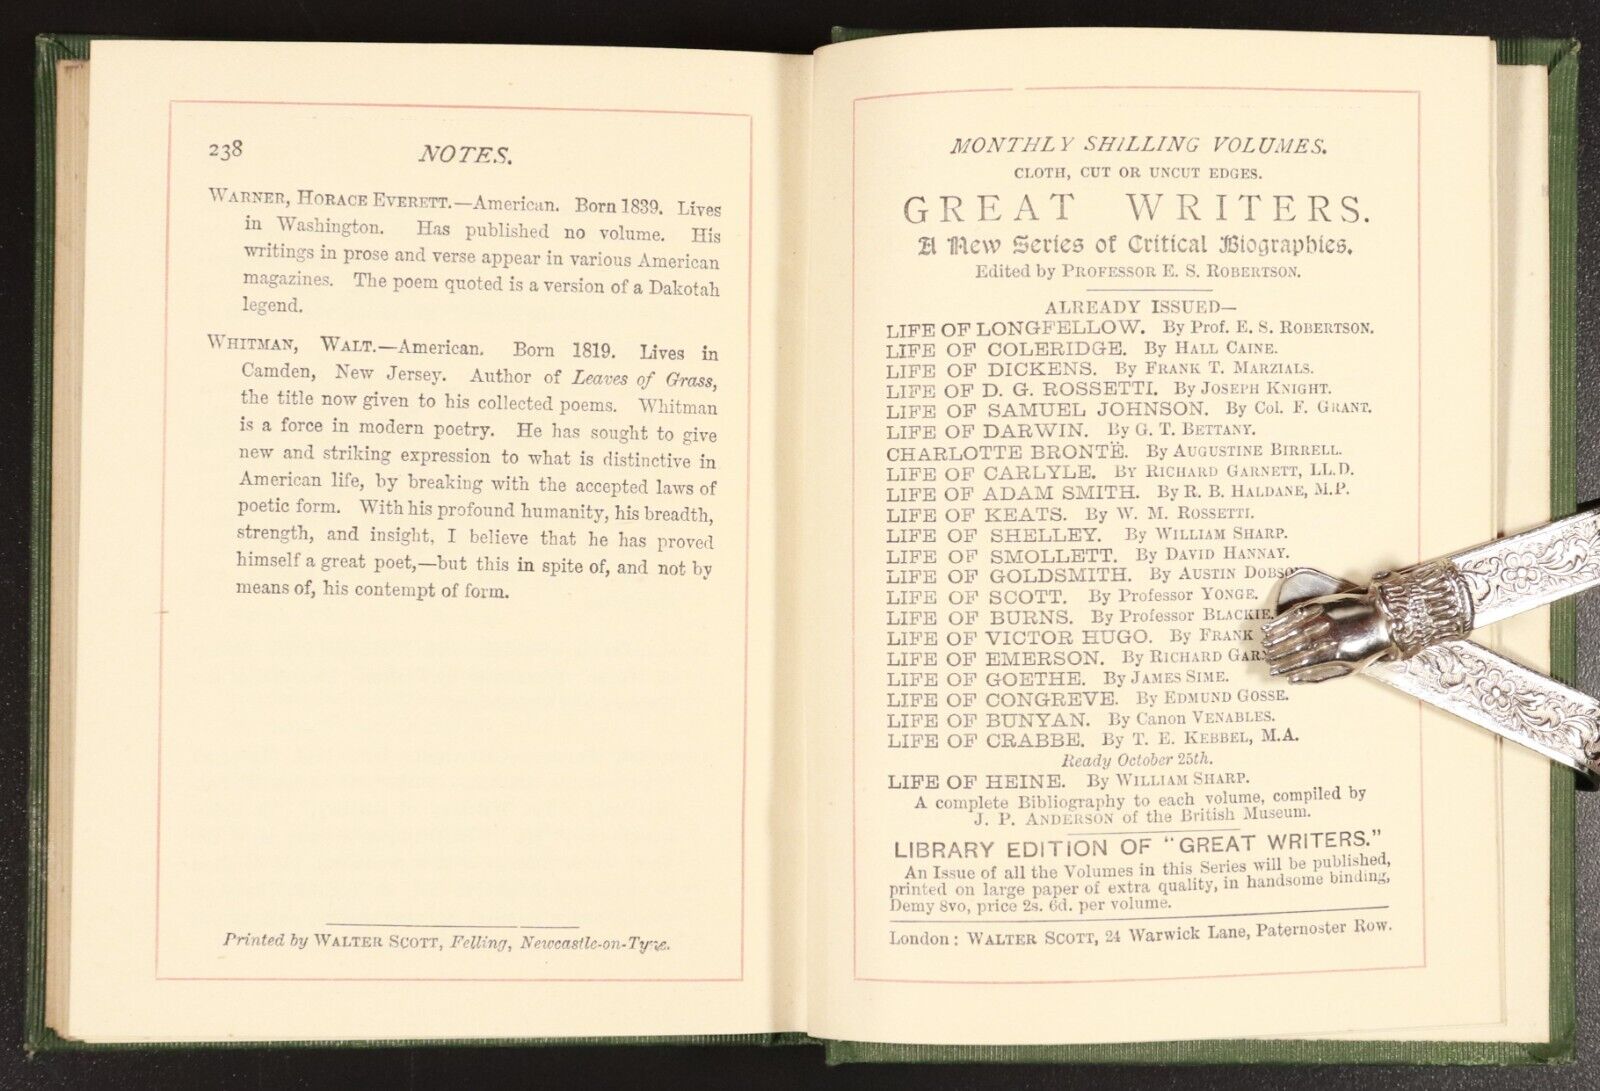 238 NOTES.
WARNER, HORACE EVERETT.—American. Born 1839. Lives
in Washington. Has published no volume. His
writings in prose and verse appear in various American
magazines. The poem quoted is a version of a Dakotah
legend.
WHITMAN, WALT.—American. Born 1819. Lives in
Camden, New Jersey. Author of Leaves of Grass,
the title now given to his collected poems. Whitman
is a force in modern poetry. He has sought to give
new and striking expression to what is distinctive in
American life, by breaking with the accepted laws of
poetic form. With his profound humanity, his breadth,
strength, and insight, I believe that he has proved
himself a great poet,—but this in spite of, and not by
means of, his contempt of form.
Printed by WALTER SCOTT, Felling, Newcastle-on-Tyne.
MONTHLY SHILLING VOLUMES.
CLOTH, CUT OR UNCUT EDGES.
GREAT WRITERS.
A New Series of Critical Biographies.
Edited by PROFESSOR E. S. ROBERTSON.
ALREADY ISSUED—
LIFE OF LONGFELLOW. By Prof. E. S. ROBERTSON.
LIFE OF COLERIDGE. By HALL CAINE.
LIFE OF DICKENS. By FRANK T. MARZIALS.
LIFE OF D. G. ROSSETTI. By JOSEPH KNIGHT.
LIFE OF SAMUEL JOHNSON. By Col. F. GRANT.
LIFE OF DARWIN. By G. T. BETTANY.
CHARLOTTE BRONTË. By AUGUSTINE BIRRELL.
LIFE OF CARLYLE. BY RICHARD GARNETT, LL.D.
LIFE OF ADAM SMITH. By R. B. HALDANE, M.P.
LIFE OF KEATS. By W. M. ROSSETTI.
LIFE OF SHELLEY. By WILLIAM SHARP.
LIFE OF SMOLLETT. By DAVID HANNAY.
LIFE OF GOLDSMITH. By AUSTIN
LIFE OF SCOTT. By Professor YONGE.
LIFE OF BURNS. By Professor BLACKIE.
LIFE OF VICTOR HUGO. By FRANK
LIFE OF EMERSON. By RICHARD
LIFE OF GOETHE. By JAMES SIME.
LIFE OF CONGREVE. By EDMUND GOSSE.
LIFE OF BUNYAN. By Canon VENABLES.
LIFE OF CRABBE. By T. E. KEBBEL, M.A.
Ready October 25th.
LIFE OF HEINE. By WILLIAM SHARP.
A complete Bibliography to each volume, compiled by
J. P. ANDERSON of the British Museum.
LIBRARY EDITION OF "GREAT WRITERS."
An Issue of all the Volumes in this Series will be published,
printed on large paper of extra quality, in handsome binding,
Demy 8vo, price 2s. 6d. per volume.
London: WALTER SCOTT, 24 Warwick Lane, Paternoster Row.